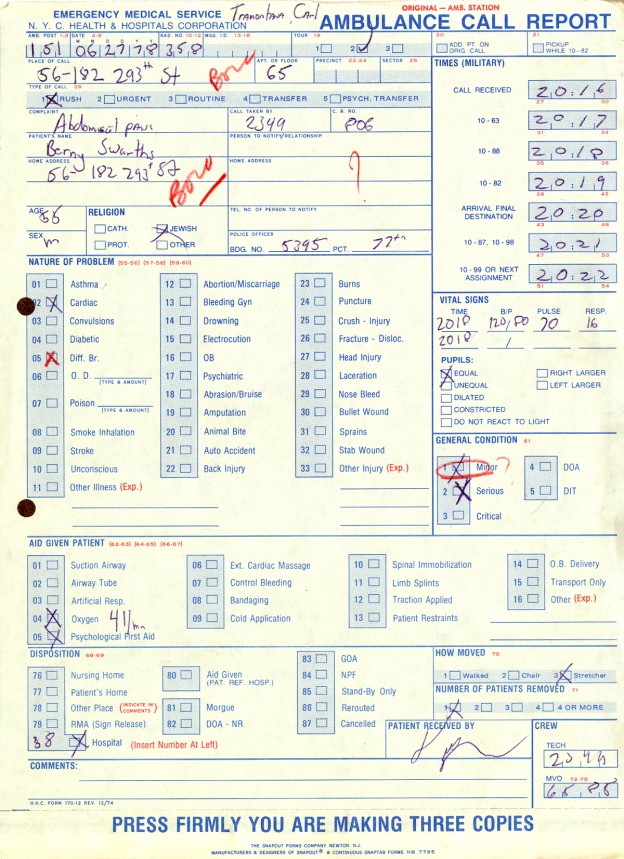 ORIGINAL — AMB. STATION
EMERGENCY MEDICAL SERVICE
N. Y. C. HEALTH & HOSPITALS CORPORATION
AMBULANCE CALL REPORT
AMB. POST 1-3 M M D D Y Y 4-9 RAD. NO. 10-12 MSG. I.D. 13-18 TOUR 19
151 06 27 78 358 1 2 3
20 ADD PT ON ORIG CALL
21 PICKUP WHILE 10—82
PLACE OF CALL APT. OR FLOOR PRECINCT 22-24 SECTOR 25
56-182 293th St 65
Bozo
TYPE OF CALL 26
1 RUSH 2 URGENT 3 ROUTINE 4 TRANSFER 5 PSYCH. TRANSFER
COMPLAINT CALL TAKEN BY C. B. NO.
Abdominal pain 2349 POG
PATIENT'S NAME PERSON TO NOTIFY/RELATIONSHIP
HOME ADDRESS HOME ADDRESS
56- 182 293 St
Bozo
?
AGE RELIGION TEL. NO. OF PERSON TO NOTIFY
CATH. JEWISH
SEX M PROT. OTHER
POLICE OFFICER
BDG. NO. 5395 PCT. 77th
TIMES (MILITARY)
CALL RECEIVED 20:16
27 30
10 - 63 20:17
31 34
10 - 88 20:18
35 38
10 - 82 20:19
39 42
ARRIVAL FINAL DESTINATION 20:20
43 46
10 - 87, 10 - 98 20:21
47 50
10 - 99 OR NEXT ASSIGNMENT 20:22
51 54
NATURE OF PROBLEM (55-56) (57-58) (59-60)
01 Asthma
02 Cardiac
03 Convulsions
04 Diabetic
05 Diff. Br.
06 O. D.
(TYPE & AMOUNT)
07 Poison
(TYPE & AMOUNT)
08 Smoke Inhalation
09 Stroke
10 Unconscious
11 Other Illness (Exp.)
12 Abortion/Miscarriage
13 Bleeding Gyn
14 Drowning
15 Electrocution
16 OB
17 Psychiatric
18 Abrasion/Bruise
19 Amputation
20 Animal Bite
21 Auto Accident
22 Back Injury
23 Burns
24 Puncture
25 Crush - Injury
26 Fracture - Disloc.
27 Head Injury
28 Laceration
29 Nose Bleed
30 Bullet Wound
31 Sprains
32 Stab Wound
33 Other Injury (Exp.)
VITAL SIGNS
TIME B/P PULSE RESP.
2018 120/80 70 16
2018 /
PUPILS:
EQUAL RIGHT LARGER
UNEQUAL LEFT LARGER
DILATED
CONSTRICTED
DO NOT REACT TO LIGHT
GENERAL CONDITION 61
1 Minor ? 4 DOA
2 Serious 5 DIT
3 Critical
AID GIVEN PATIENT (62-63) (64-65) (66-67)
01 Suction Airway
02 Airway Tube
03 Artificial Resp.
04 Oxygen
05 Psychological First Aid
06 Ext. Cardiac Massage
07 Control Bleeding
08 Bandaging
09 Cold Application
10 Spinal Immobilization
11 Limb Splints
12 Traction Applied
13 Patient Restraints
14 O.B. Delivery
15 Transport Only
16 Other (Exp.)
DISPOSITION 68-69
76 Nursing Home
77 Patient's Home
78 Other Place (INDICATE IN COMMENTS)
79 RMA (Sign Release)
38 Hospital (Insert Number At Left)
80 Aid Given (PAT. REF. HOSP.)
81 Morgue
82 DOA - NR
83 GOA
84 NPF
85 Stand-By Only
86 Rerouted
87 Cancelled
HOW MOVED 70
1 Walked 2 Chair 3 Stretcher
NUMBER OF PATIENTS REMOVED 71
1 2 3 4 4 OR MORE
PATIENT RECEIVED BY
CREW
TECH
MVO 72-75
COMMENTS:
H.H.C. FORM 170-12 REV. 12/74
PRESS FIRMLY YOU ARE MAKING THREE COPIES
THE SNAPOUT FORMS COMPANY NEWTON, N.J.
MANUFACTURERS & DESIGNERS OF SNAPOUT® & CONTINUOUS SNAPTAB FORMS HB 7795